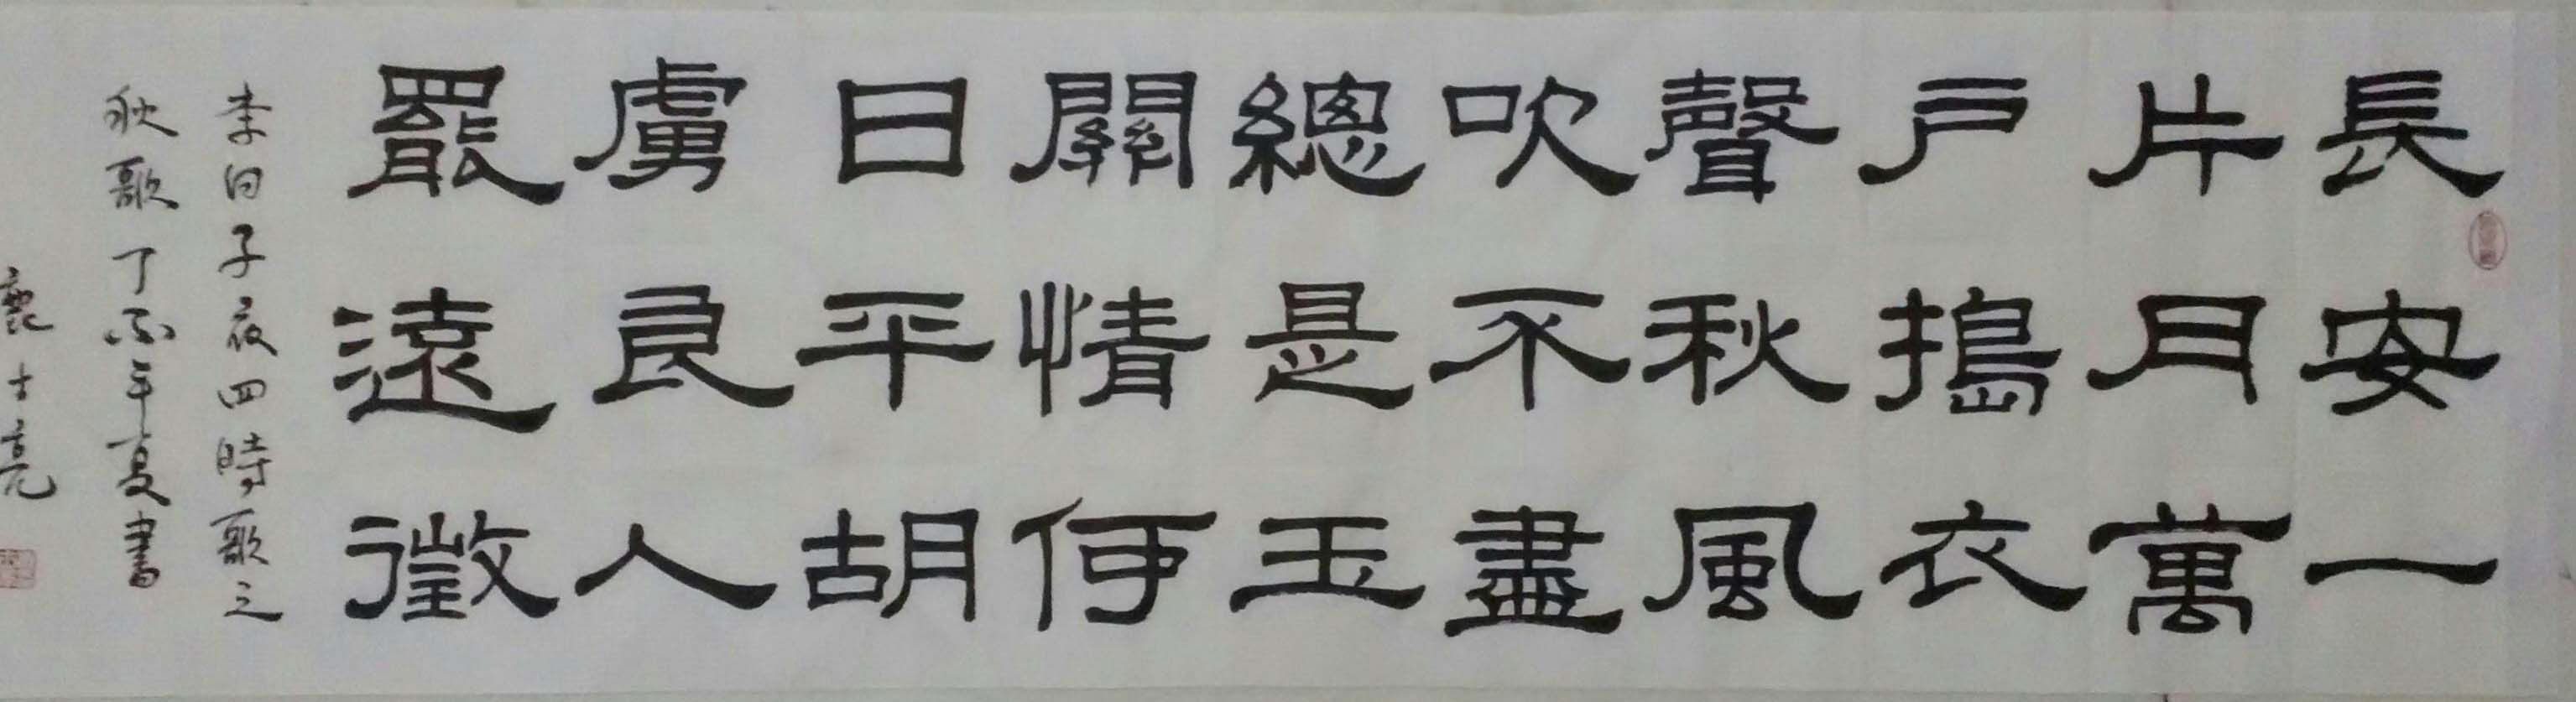 長安一
片月萬
戶搗衣
聲秋風
吹不盡
總是玉
關情何
日平胡
虜良人
罷遠徵
李白子夜四時歌之
秋歌丁酉年夏書
士亮